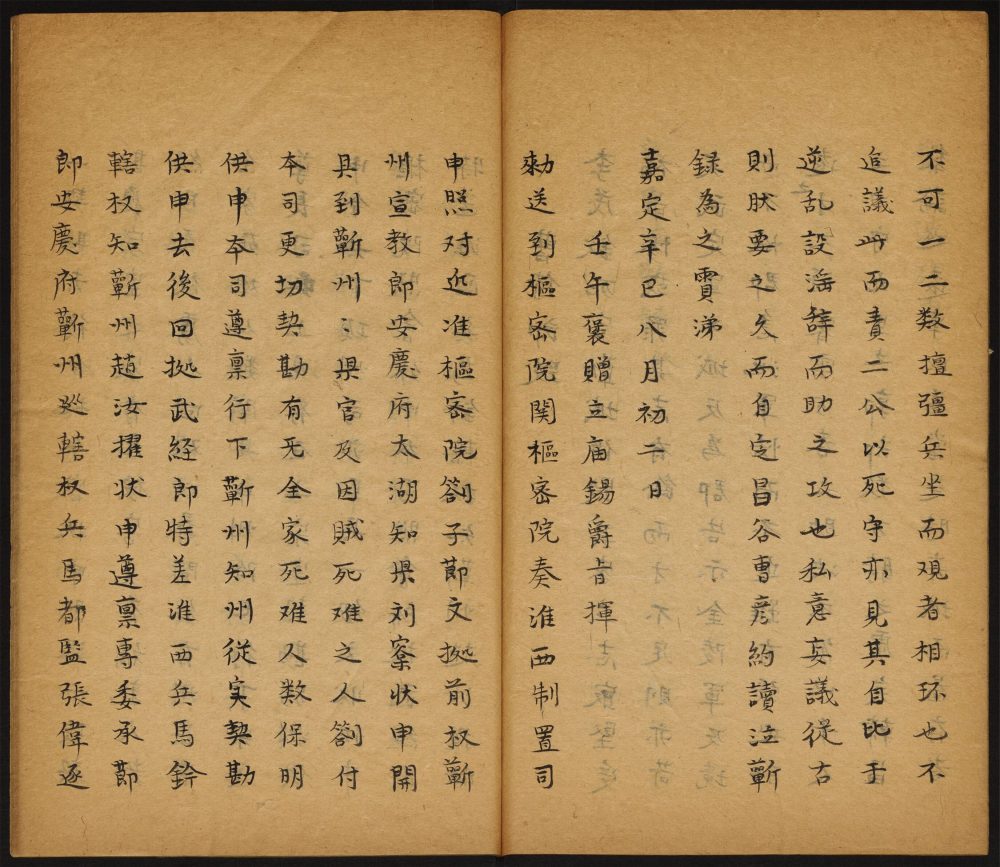 不可一二数擅彊兵坐而观者相环也不
追議此而責二公以死守亦見其自比于
逆乱設滛辞而助之攻也私意妄議従古
則肰要之久而自定昌谷曹彦約讀泣蘄
録為之賈涕
嘉定辛巳八月初一日
壬午褒贈立庙錫爵㫖揮
勑送到樞密院関樞密院奏淮西制置司
申照对近准樞密院劄子節文拠前权蘄
州宣教郎安慶府太湖知県刘寀状申開
具到蘄州三県官及因贼死难之人劄付
本司更切契勘有无全家死难人数保明
供申本司遵禀行下蘄州知州從实契勘
供申去後回拠武経郎特差淮西兵馬鈐
轄权知蘄州趙汝擢状申遵禀專委承節
郎安慶府蘄州廵轄权兵馬都監張偉逐